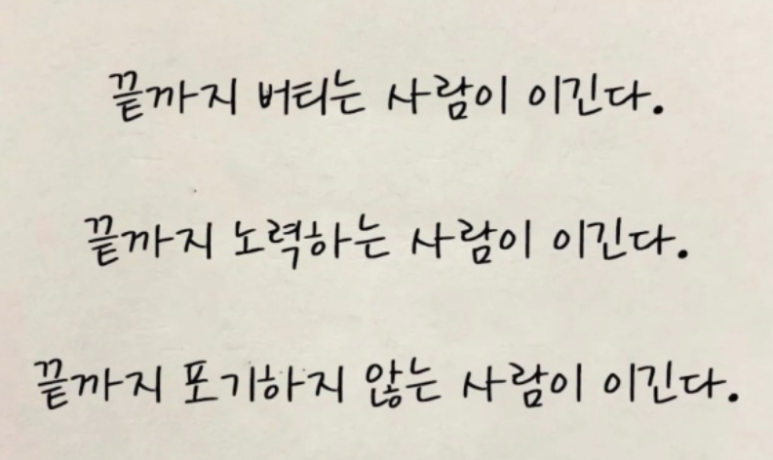 끝까지 버티는 사람이 이긴다.
끝까지 노력하는 사람이 이긴다.
끝까지 포기하지 않는 사람이 이긴다.